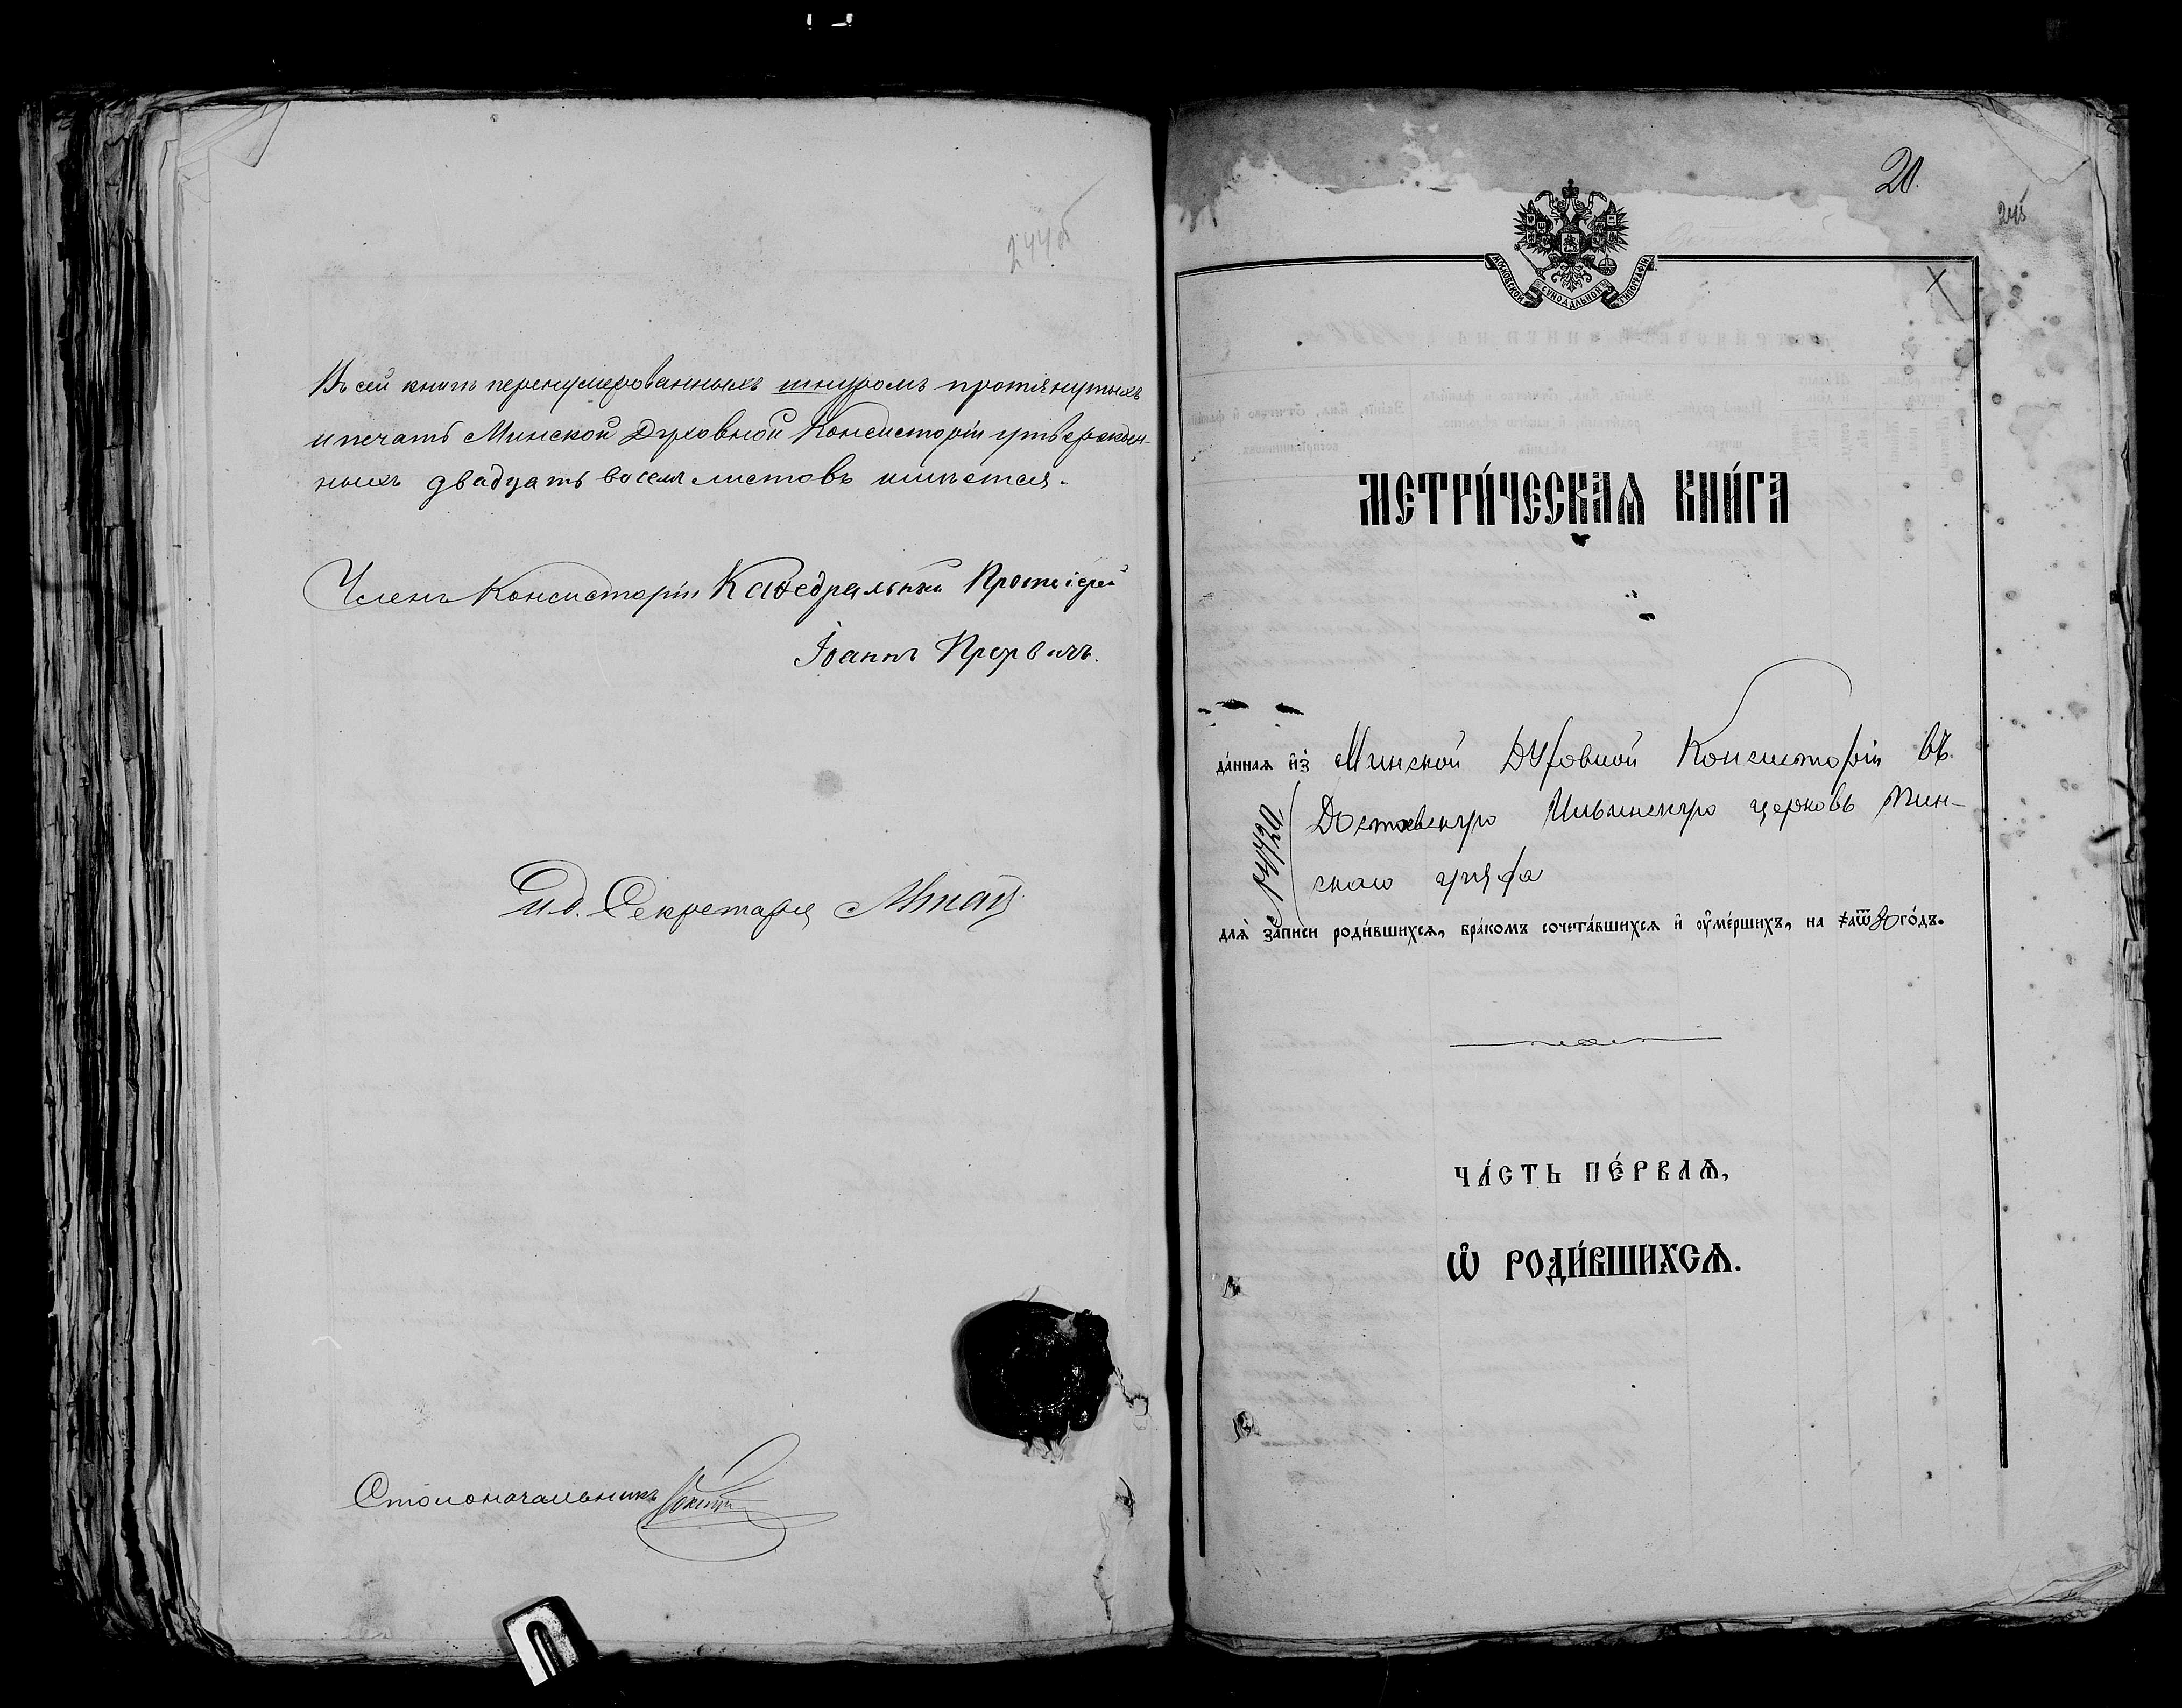 244об
Въ сей книгѣ перенумерованныхъ шнуромъ протянутыхъ
и печатью Минской Духовной Консисторіи утвержден-
ныхъ двадцать восемь листовъ имѣется.
Членъ Консисторіи Каѳедральный Протоіерей
Іоаннъ
И.д. Секретаря
Столоначальникъ
20.
245
МОСКОВСКОЙ СѴНОДАЛЬНОЙ ТИПОГРАФІИ
МЕТРИ́ЧЕСКАѦ КНИ́ГА
да́нная и҆з̾ Минской Духовной Консисторіи въ
Достоевскую Ильинскую церковь Пин-
скаго уѣзда
для̀ за́писи роди́вшихся, бра́комъ сочета́вшихся и҆ ᲂу҆ме́ршихъ, на ҂аѿ го́дъ.
ЧА́СТЬ ПЕ́РВАѦ,
Ѽ РОДИ́ВШИХСѦ.